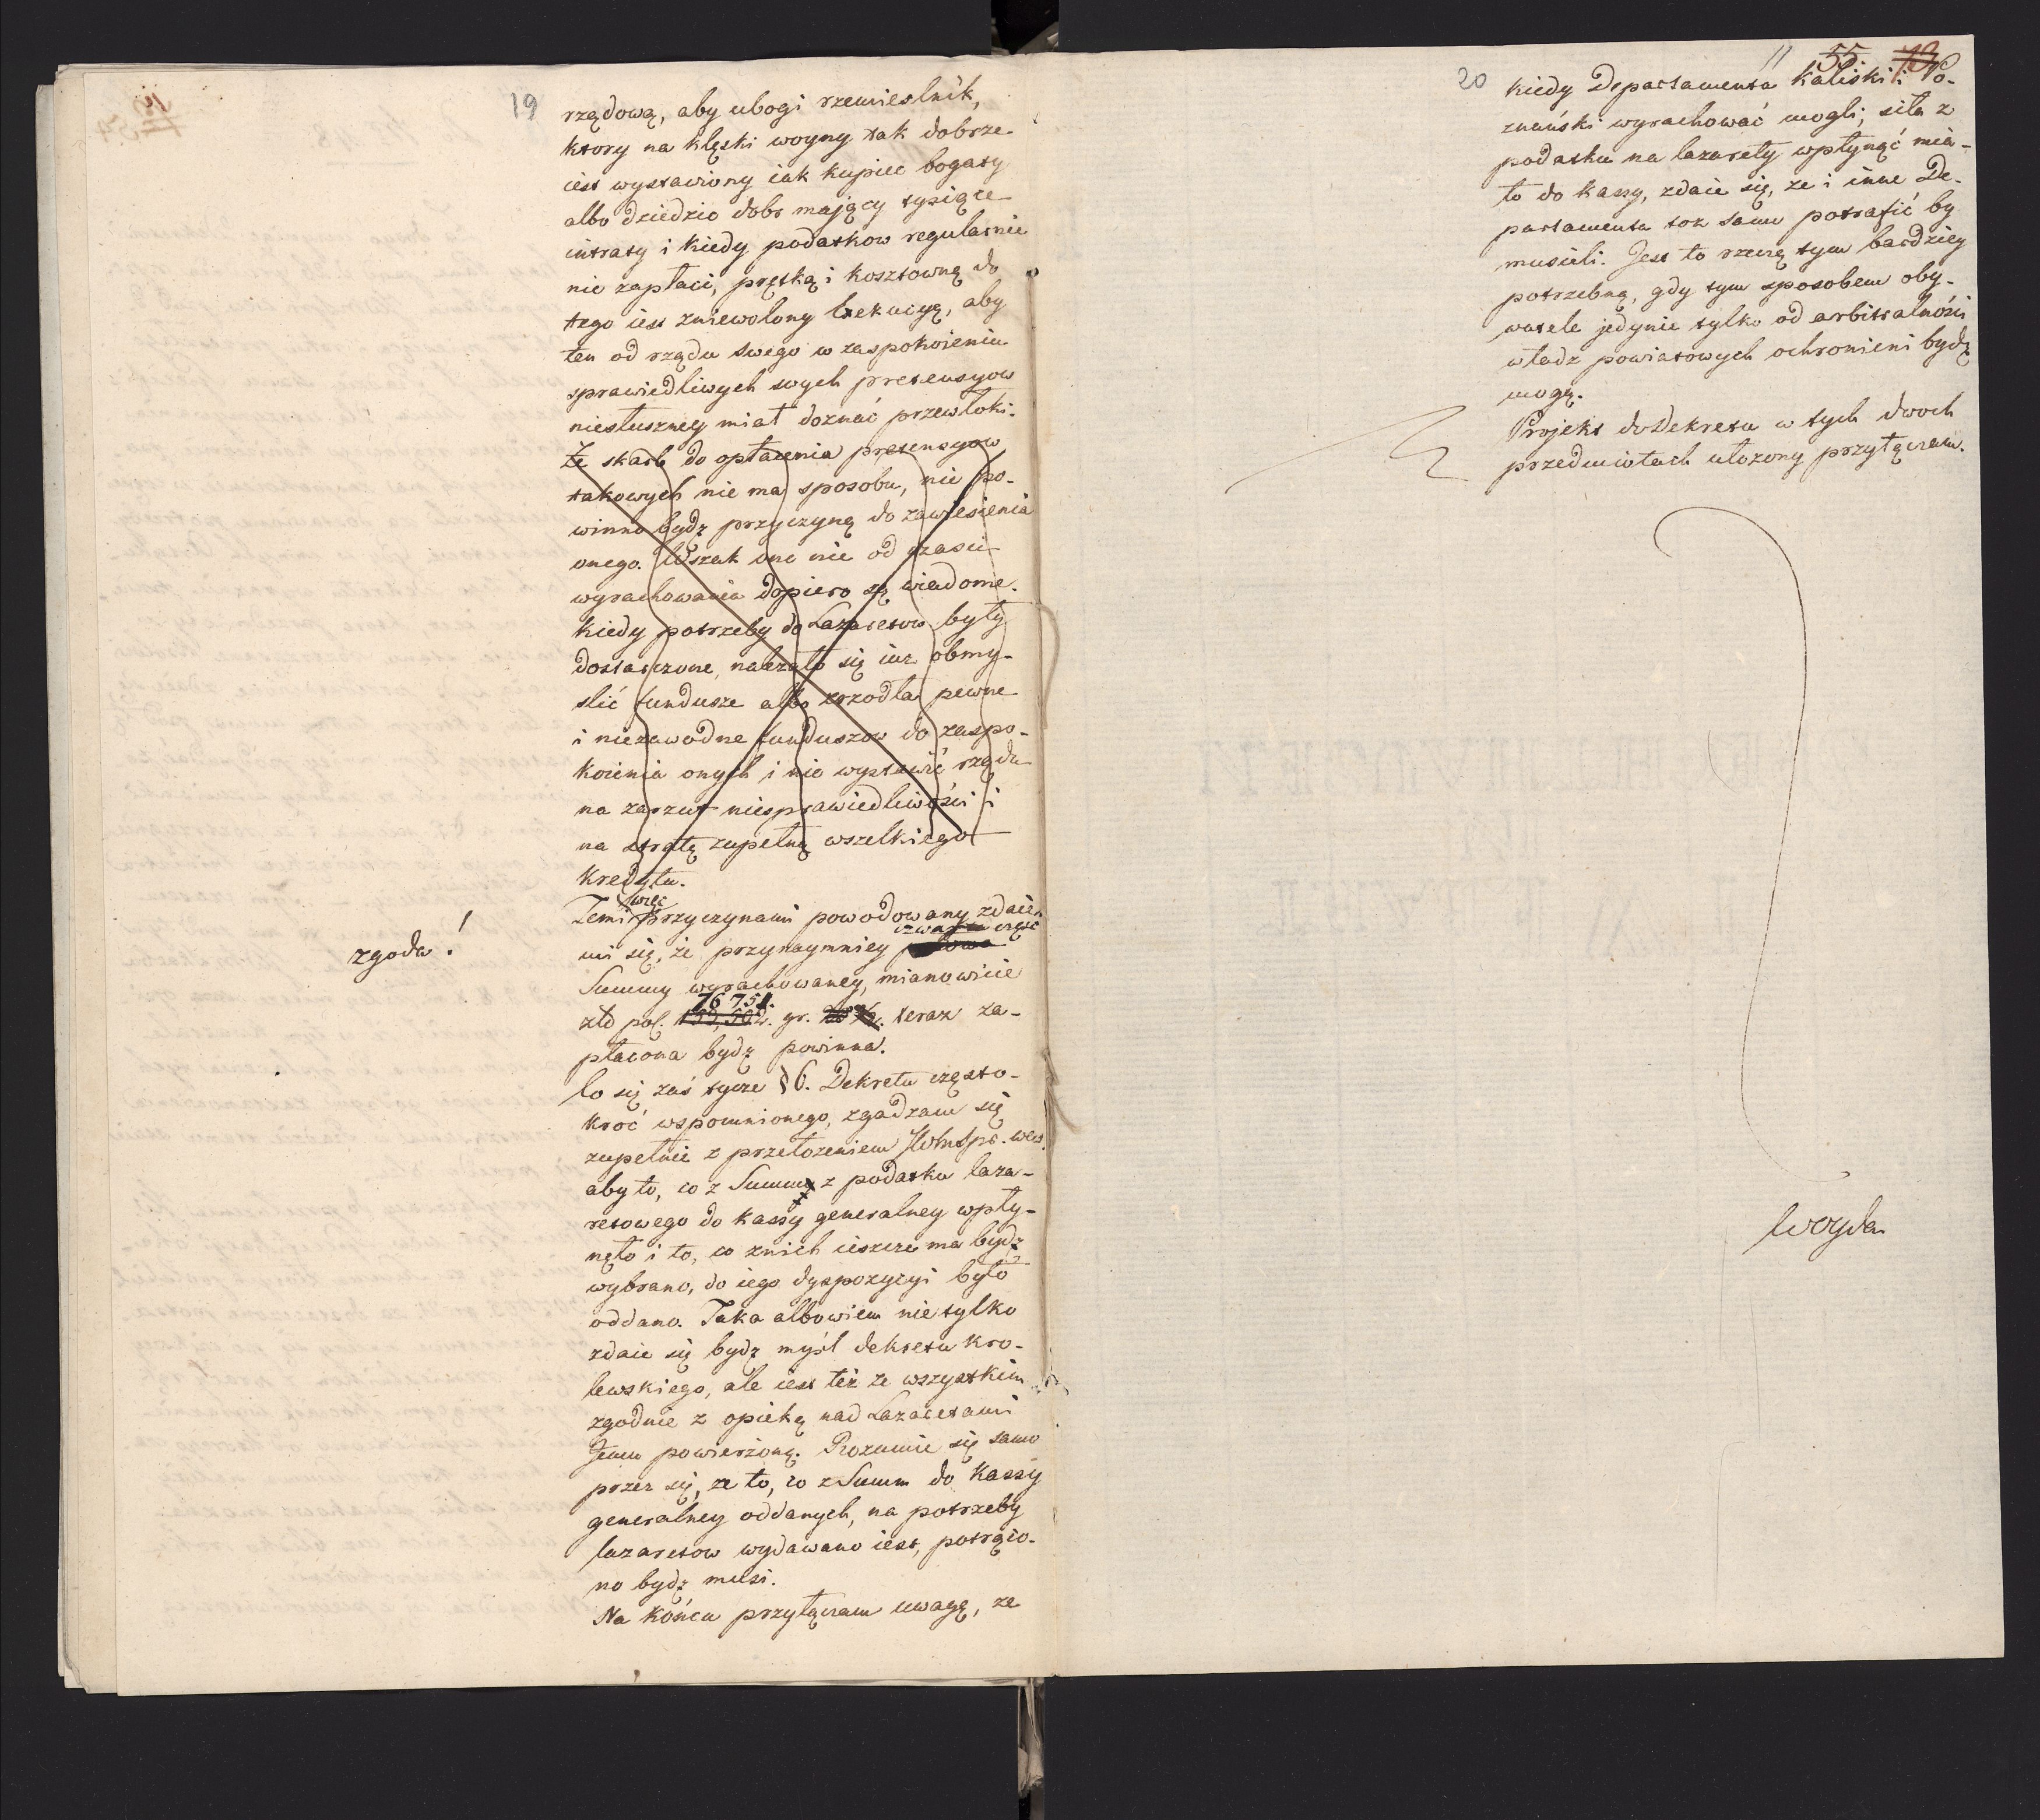 19
rządową, aby ubogi rzemieslnik,
ktory na klęski woyny tak dobrze
iest wystawiony iak kupiec bogaty
albo dziedzic dobr mający tysiące
intraty i kiedy podatkow regularnie
nie zapłaci, prętką i kosztowną do
tego iest zniewolony Exekucyą, aby
ten od rządu swego w zaspokoieniu
sprawiedliwych swych pretensyow
niesłuszney miał doznać przewłoki.
Że skarb do opłacenia pretensyow
takowych nie ma sposobu, nie po-
winno bydź przyczyną do zawiesienia
onego. Wszak one nie od czasu
wyrachowania dopiero są wiadome.
Kiedy potrzeby do Lazaretow były
dostarczone, należało się iuż obmy-
slić fundusze albo zrzodła pewne
i niezawodne funduszow do zaspo-
koienia onych i nie wystawić rządu
na zarzut niesprawiedliwości i
na stratę zupełną wszelkiego
kredytu.
więc
Temi przyczynami powodowany zdaie
czwarta część
mi się, że przynaymniey połowa
Summy wyrachowaney, mianowicie
76 751.
złt pol. 153,502. gr. teraz za-
płacona bydź powinna.
zgoda!
Co się zaś tycze § 6. Dekretu często-
kroć wspomnionego, zgadzam się
zupełnie z przełożeniem JWMSpr. wew.
aby to, co z Summy z podatku laza-
retowego do kassy generalney wpły-
nęło i to, co z nich ieszcze ma bydź
wybrano, do iego dyspozycyi było
oddano. Taka albowiem nie tylko
zdaie się bydź myśl dekretu kro-
lewskiego, ale iest też ze wszystkim
zgodnie z opieką nad Lazaretami
Jemu powierzoną. Rozumie się samo
przez się, że to, co z Summ do Kassy
generalney oddanych, na potrzeby
lazaretow wydawano iest, potrąco-
no bydź musi.
Na końcu przyłączam uwagę, że
11 55 73
20
kiedy Departamenta Kaliski i Po-
znański wyrachować mogli, siła z
podatku na lazarety wpłynąć mia-
ło do kassy, zdaie się, że i inne De-
partamenta toż samo potrafić by
musieli. Jest to rzeczą tym bardziey
potrzebną, gdy tym sposobem oby-
watele jedynie tylko od arbitralności
władz powiatowych ochronieni bydź
mogą.
Projekt do Dekretu w tych dwoch
przedmiotach ułożony przyłączam.
Woyda